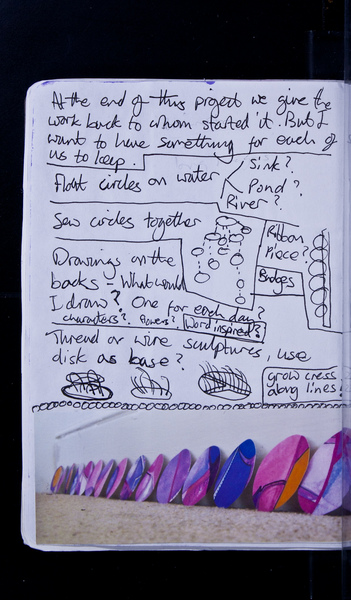 At the end of this project we give the
work back to whom started it. But I
want to have something for each of
us to keep.
Float circles on water
Sink?
Pond?
River?
Sew circles together
Ribbon
Piece?
Badges
Drawings on the
backs - What would
I draw? One for each day?
characters? flowers? Word inspired?
Thread or wire sculptures, use
disk as base?
grow cress
along lines!